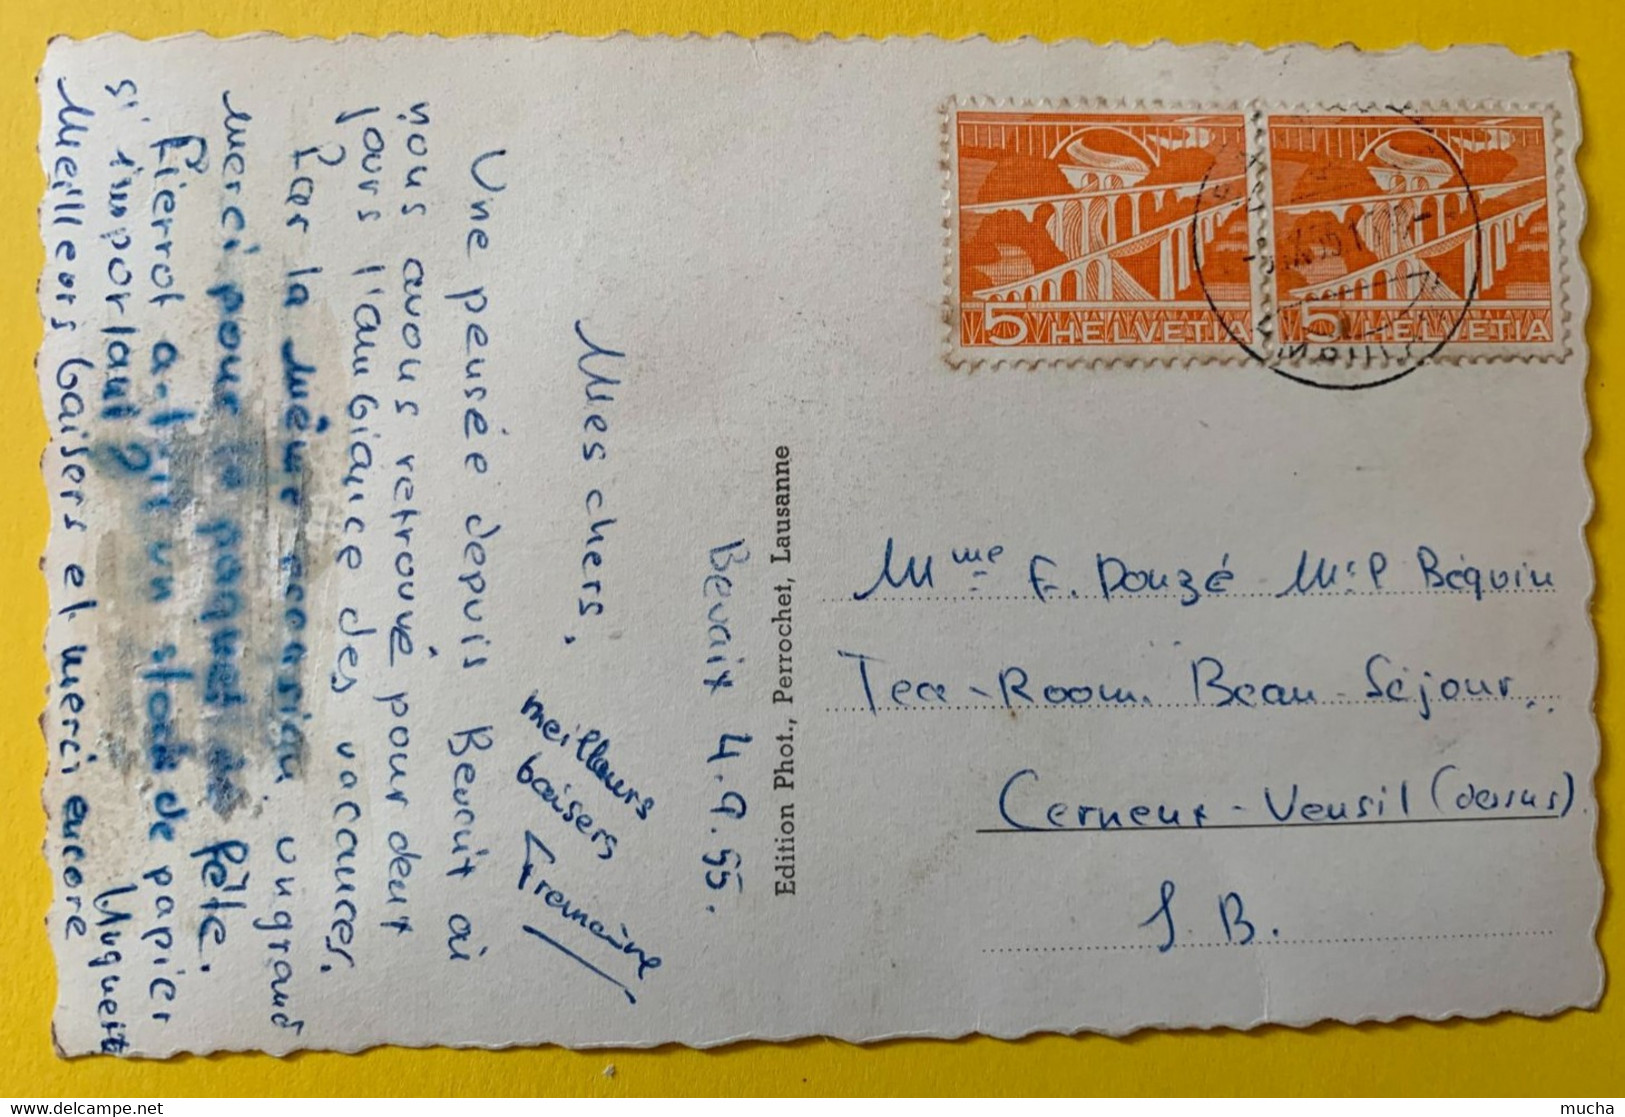 Bevaix 4.9.55.
Mes chers,
Une pensée depuis Bevaix où
nous avons retrouvé pour deux
jours l'ambiance des vacances.
Par la même occasion un grand
merci pour le paquet de fête.
Pierrot a-t-il un stock de papier
s'important?
Meilleurs baisers et merci encore
Huguette
meilleurs
baisers
Edition Phot., Perrochet, Lausanne
5 HELVETIA
5 HELVETIA
Mme F. Donzé Mlle P Béquin
Tea-Room. Beau-Séjour
Cerneux-Veusil (dessus)
J. B.
mucha